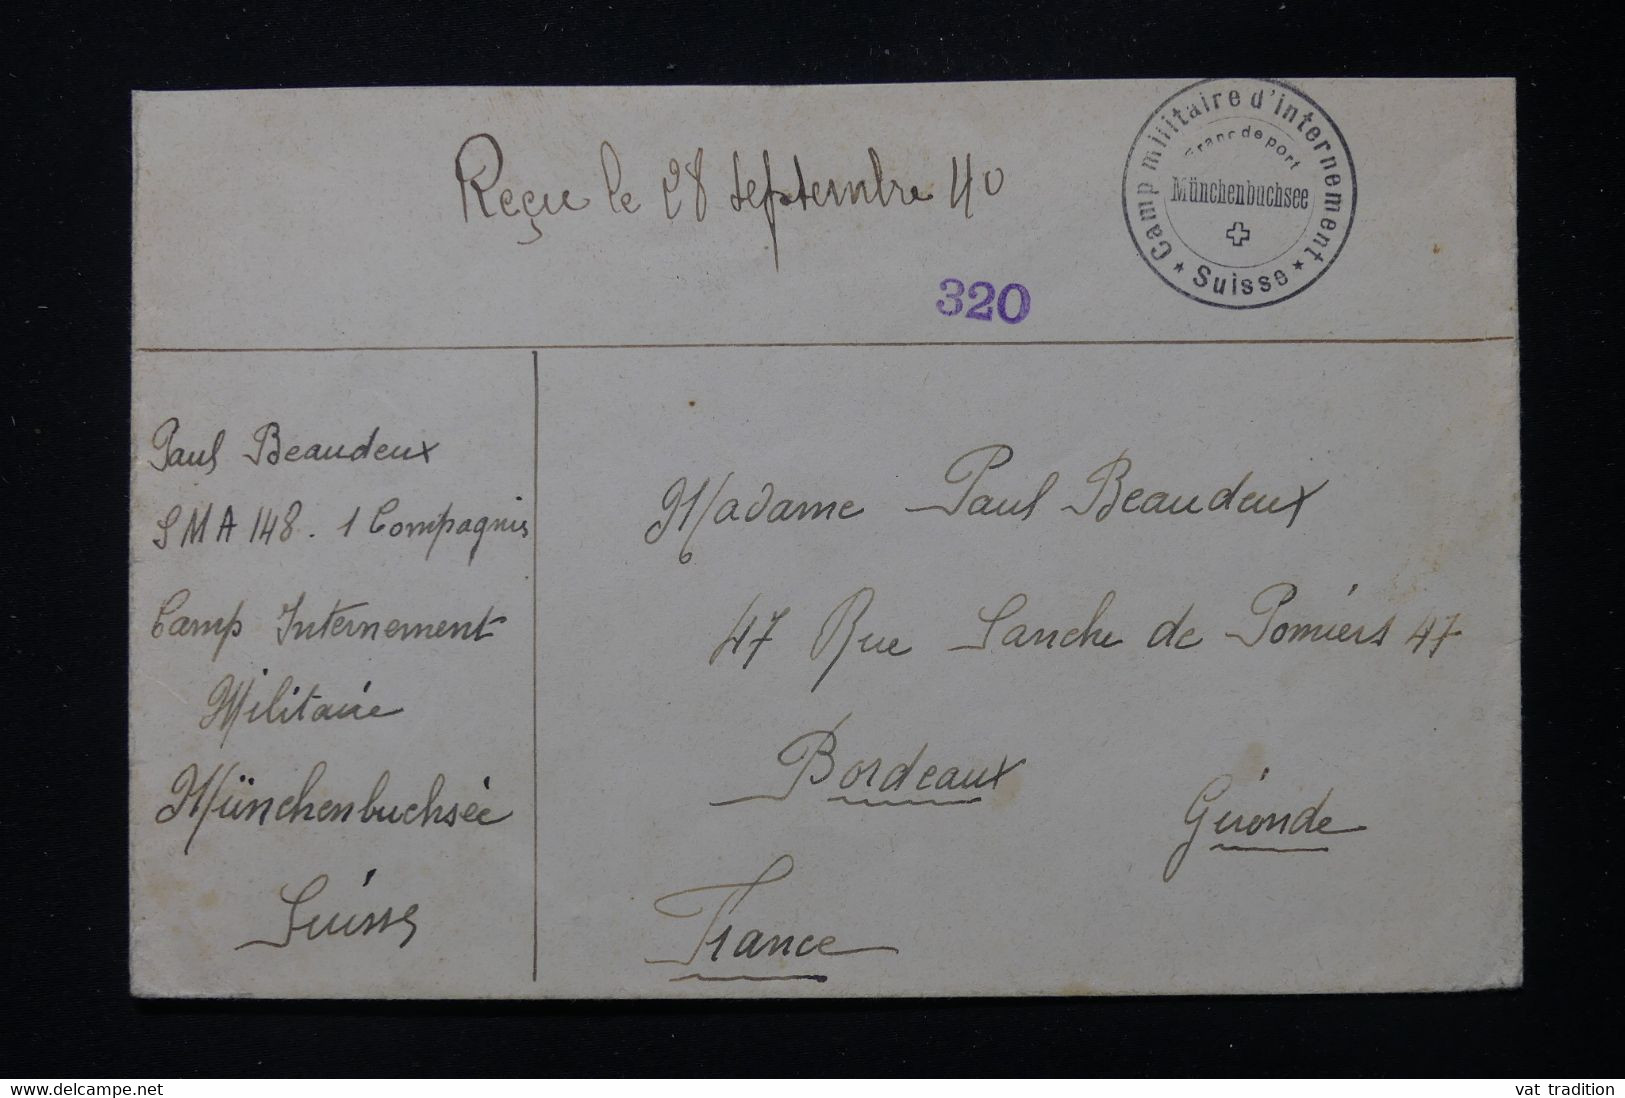 Reçu le 28 septembre 40
Camp militaire d'internement
Franc de port
Münchenbuchsee
★ Suisse ★
320
Paul Beaudeux
SMA 148. 1 Compagnie
Camp Internement
Militaire
Münchenbuchsée
Suisse
Madame Paul Beaudeux
47 Rue Sanche de Pomiers 47
Bordeaux
Gironde
France
www.delcampe.net
vat tradition